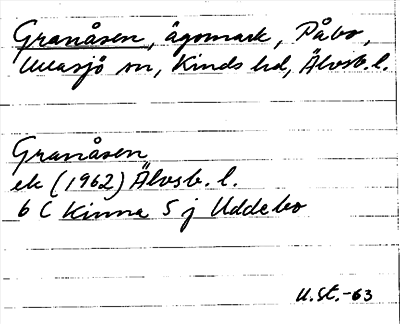 Granåsen, ägomark, Påbo,
Ullasjö sn, Kinds hd, Älvsb. l.
Granåsen
ek (1962) Älvsb. l.
6 C Kinna 5 j Uddebo
U.St.-63